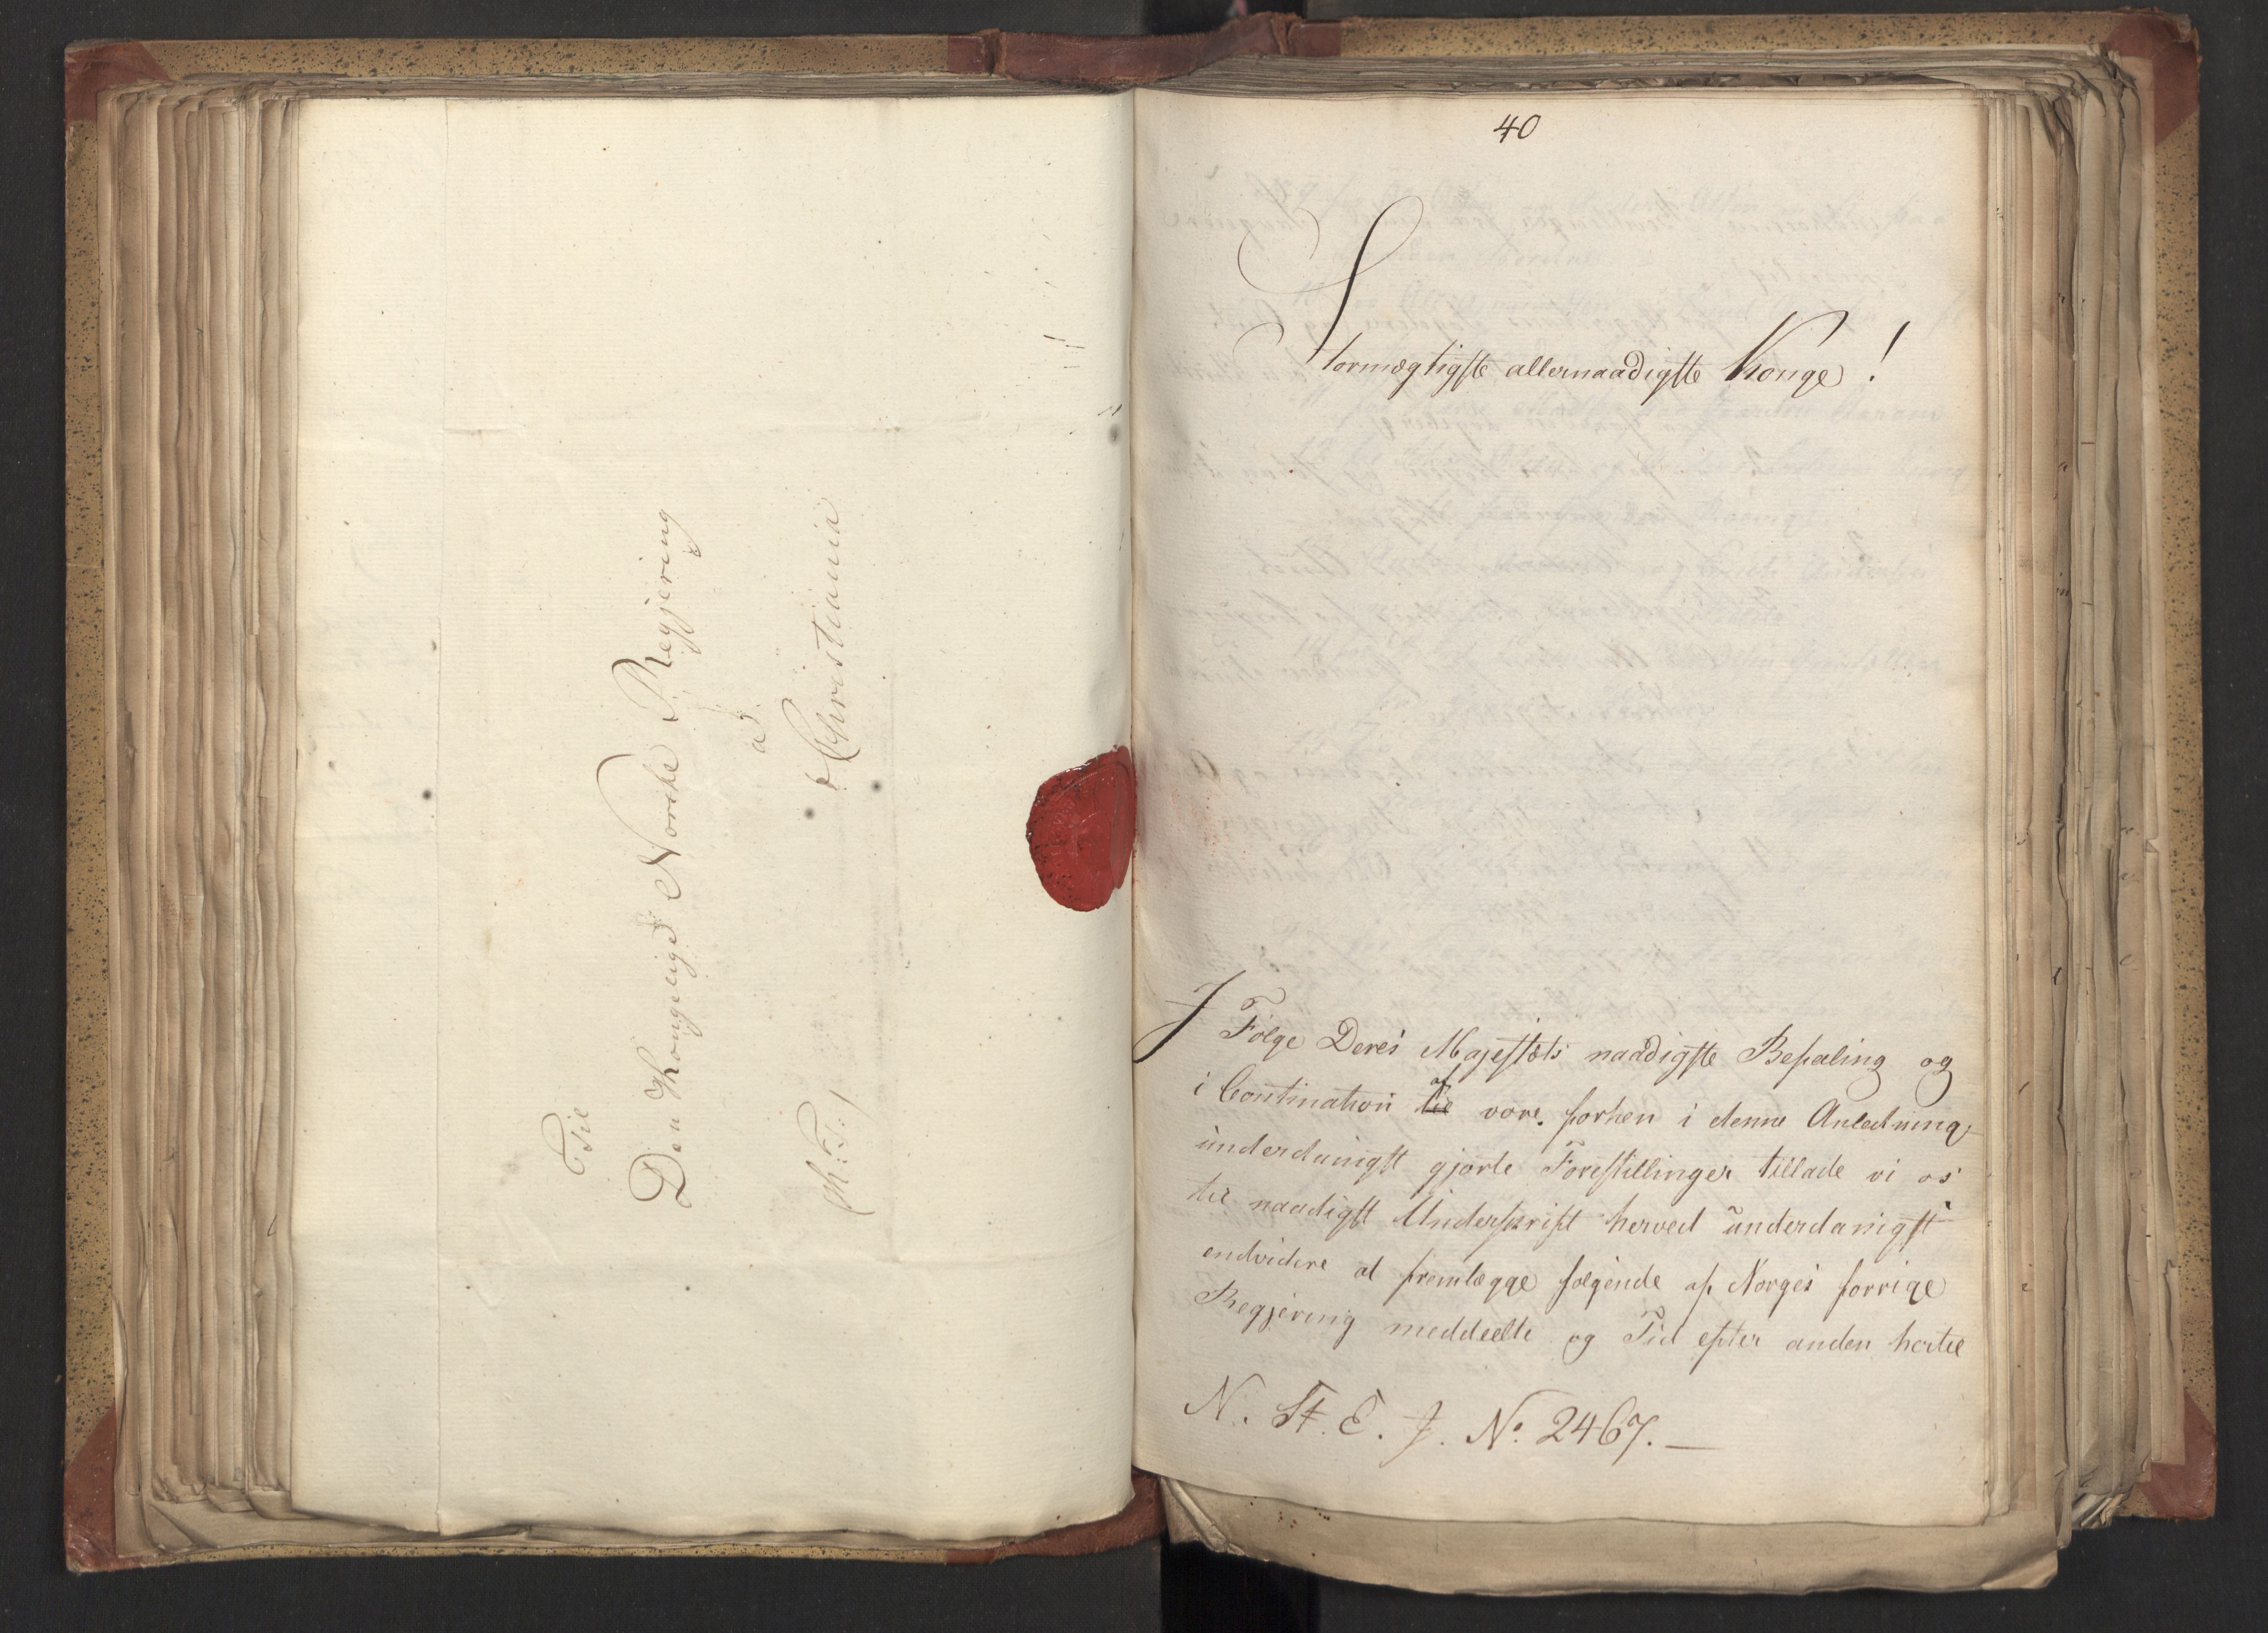 Til
Den Kongelige Norske Regjering
a
Christiania
40
Stormægtigste allernaadigste Konge!
I Følge Deres Majestæts naadigste Befaling og
i Contination af vore forhen i denne Anledning
underdanigst gjorte Forestillinger tillade vi os
til naadigst Underskrift herved underdanigst
endvidere at fremlægge følgende af Norges forrige
Regjering meddeelte og Tid efter anden hertil
N. St. E. J. No. 2467. —